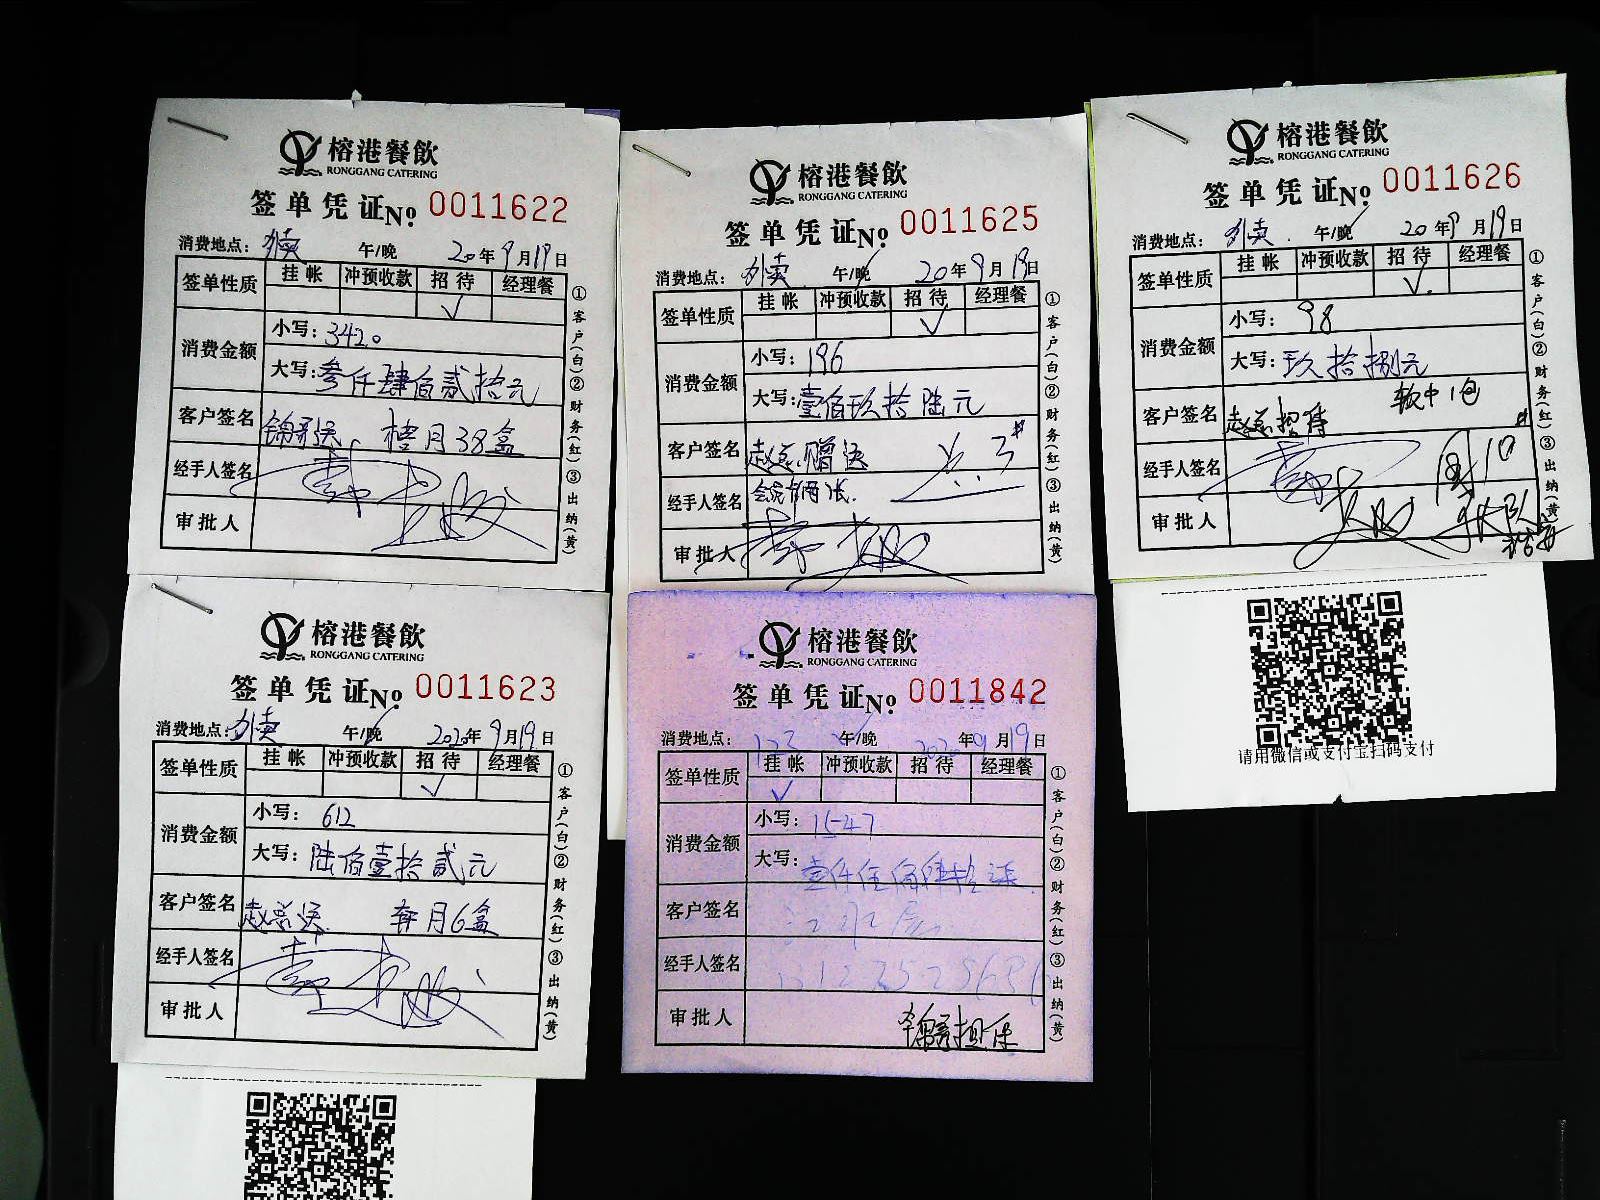 榕港餐飲
RONGGANG CATERING
签单凭证No. 0011622
消费地点: 外卖 午/晚 20年9月19日
签单性质 挂帐 冲预收款 招待 经理餐
√
消费金额 小写: 3420
大写: 叁仟肆佰贰拾元
客户签名 锦哥送 38盒
经手人签名
审批人
①客户(白)②财务(红)③出纳(黄)
榕港餐飲
RONGGANG CATERING
签单凭证No. 0011625
消费地点: 外卖 午/晚 20年9月19日
签单性质 挂帐 冲预收款 招待 经理餐
√
消费金额 小写: 196
大写: 壹佰玖拾陆元
客户签名 赵总赠送
经手人签名
审批人
①客户(白)②财务(红)③出纳(黄)
榕港餐飲
RONGGANG CATERING
签单凭证No. 0011626
消费地点: 外卖 午/晚 20年9月19日
签单性质 挂帐 冲预收款 招待 经理餐
√
消费金额 小写: 98
大写: 玖拾捌元
软中1包
客户签名 赵总招待
经手人签名
审批人
①客户(白)②财务(红)③出纳(黄)
请用微信或支付宝扫码支付
榕港餐飲
RONGGANG CATERING
签单凭证No. 0011623
消费地点: 外卖 午/晚 2020年9月19日
签单性质 挂帐 冲预收款 招待 经理餐
√
消费金额 小写: 612
大写: 陆佰壹拾贰元
客户签名 赵总送 月6盒
经手人签名
审批人
①客户(白)②财务(红)③出纳(黄)
榕港餐飲
RONGGANG CATERING
签单凭证No. 0011842
消费地点: 123 午/晚 2020年9月19日
签单性质 挂帐 冲预收款 招待 经理餐
√
消费金额 小写: 1547
大写: 壹仟伍佰肆拾柒
客户签名
经手人签名
审批人 担保
①客户(白)②财务(红)③出纳(黄)